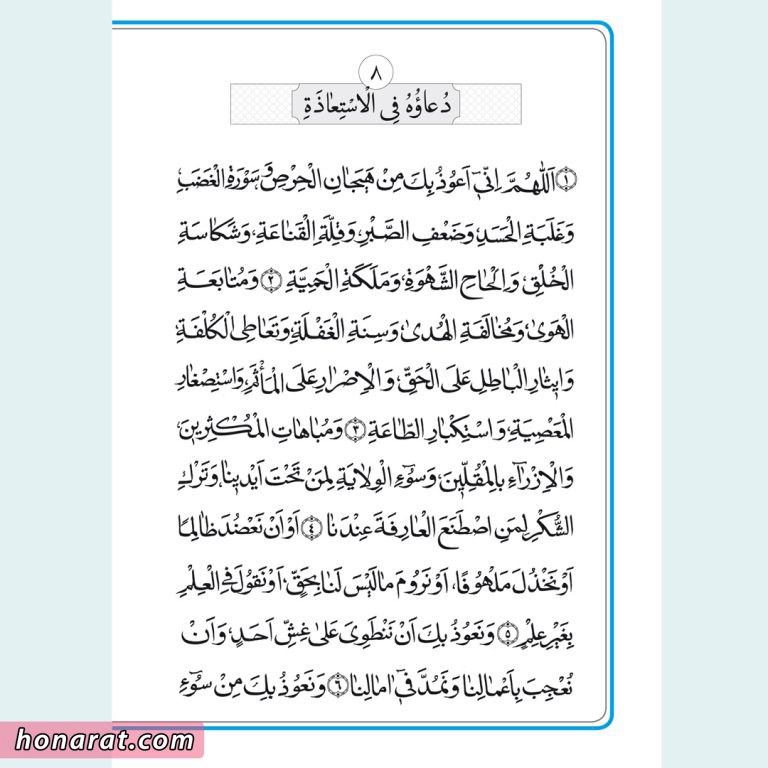 ٨
دُعاؤُهُ فِی الْاسْتِعاذَةِ
﴿١﴾ اَللّٰهُمَّ اِنّیٓ اَعُوذُ بِكَ مِنْ هَیَجانِ الْحِرْصِ وَ سَوْرَةِ الْغَضَبِ
وَ غَلَبَةِ الْحَسَدِ وَ ضَعْفِ الصَّبْرِ وَ قِلَّةِ الْقَناعَةِ، وَ شَكاسَةِ
الْخُلْقِ، وَ اِلْحاحِ الشَّهْوَةِ، وَ مَلَكَةِ الْحَمِیَّةِ ﴿٢﴾ وَ مُتابَعَةِ
الْهَویٰ، وَ مُخالَفَةِ الْهُدیٰ، وَ سِنَةِ الْغَفْلَةِ، وَ تَعاطِی الْكُلْفَةِ،
وَ ایٖثارِ الْباطِلِ عَلَی الْحَقِّ، وَ الْاِصْرارِ عَلَی الْمَأْثَمِ، وَ اسْتِصْغارِ
الْمَعْصِیَةِ، وَ اسْتِكْبارِ الطّاعَةِ ﴿٣﴾ وَ مُباهاتِ الْمُكْثِریٖنَ،
وَ الْاِزْرآءِ بِالْمُقِلّیٖنَ، وَ سُوٓءِ الْوِلایَةِ لِمَنْ تَحْتَ اَیْدیٖنا، وَ تَرْكِ
الشُّكْرِ لِمَنِ اصْطَنَعَ الْعارِفَةَ عِنْدَنا ﴿٤﴾ اَوْ اَنْ نَعْضُدَ ظالِمًا
اَوْ نَخْذُلَ مَلْهُوفًا، اَوْ نَرُومَ ما لَیْسَ لَنا بِحَقٍّ، اَوْ نَقُولَ فِی الْعِلْمِ
بِغَیْرِ عِلْمٍ ﴿٥﴾ وَ نَعُوذُ بِكَ اَنْ نَنْطَوِیَ عَلیٰ غِشِّ اَحَدٍ، وَ اَنْ
نُعْجِبَ بِاَعْمالِنا وَ نَمُدَّ فیٓ اٰمالِنا ﴿٦﴾ وَ نَعُوذُ بِكَ مِنْ سُوٓءِ
honarat.com